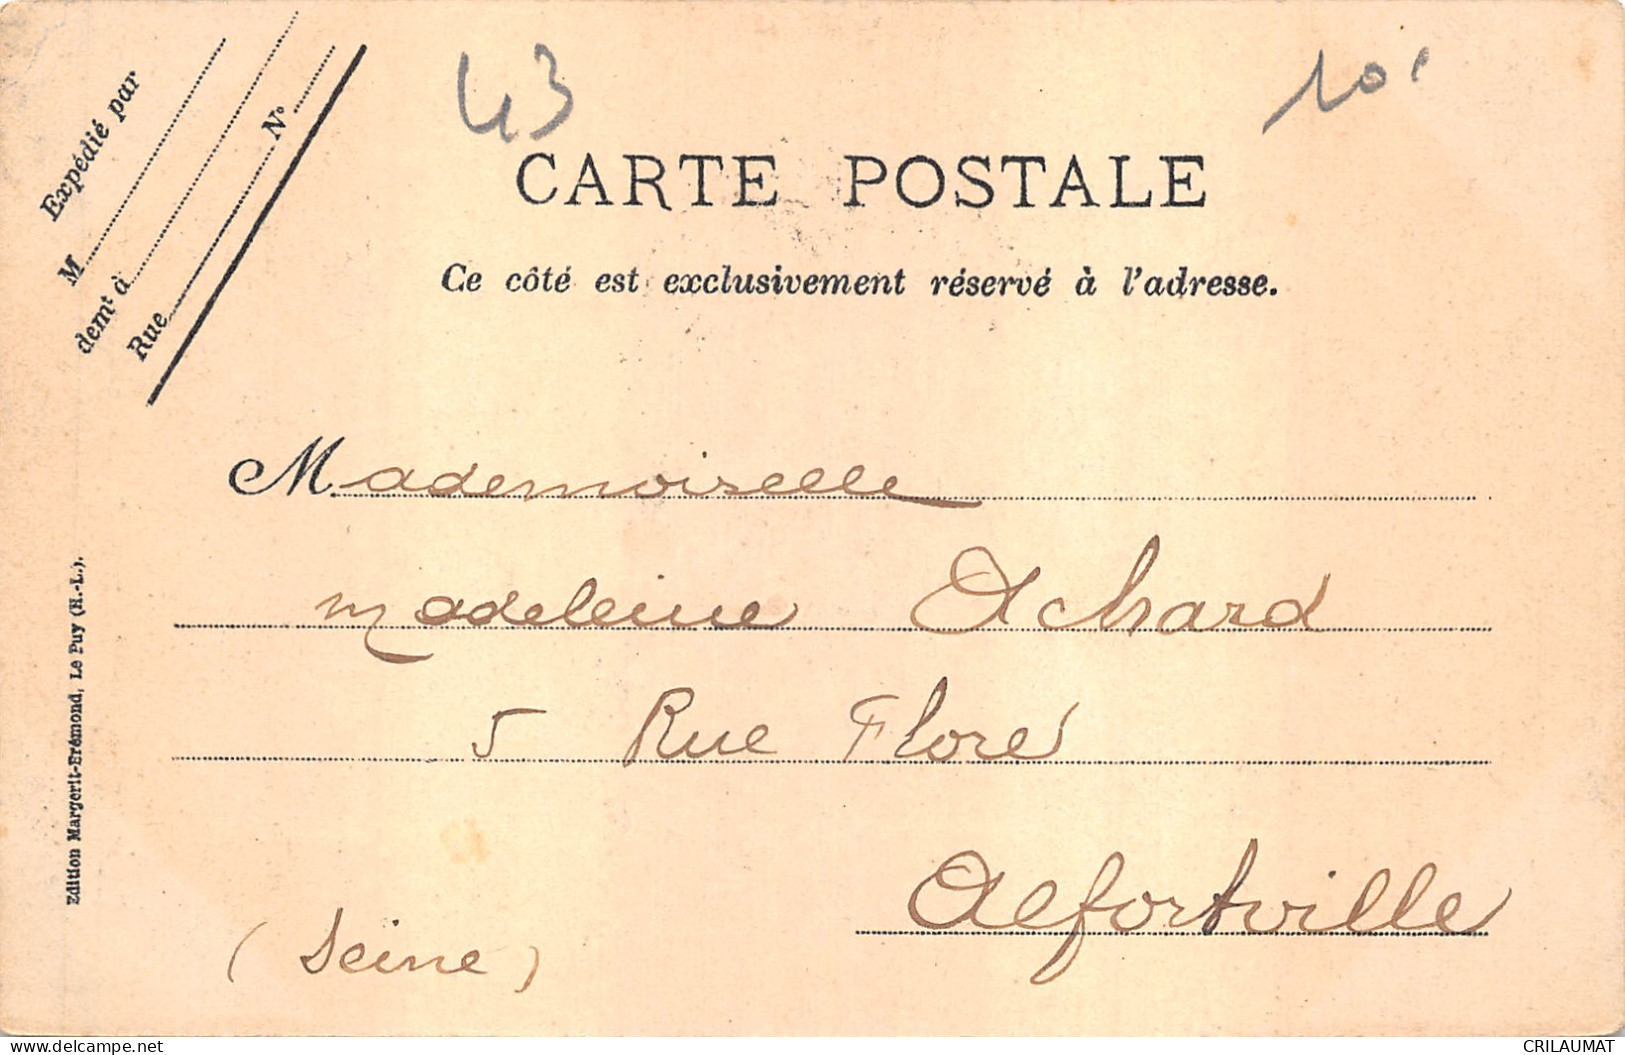 43
10
Expédié par
M
demt à
Rue N°
CARTE POSTALE
Ce côté est exclusivement réservé à l'adresse.
Mademoiselle
Madeleine Achard
5 Rue Flore
Alfortville
(Seine)
Edition Margerit-Brémond, Le Puy (H.-L.).
delcampe.net
CRILAUMAT